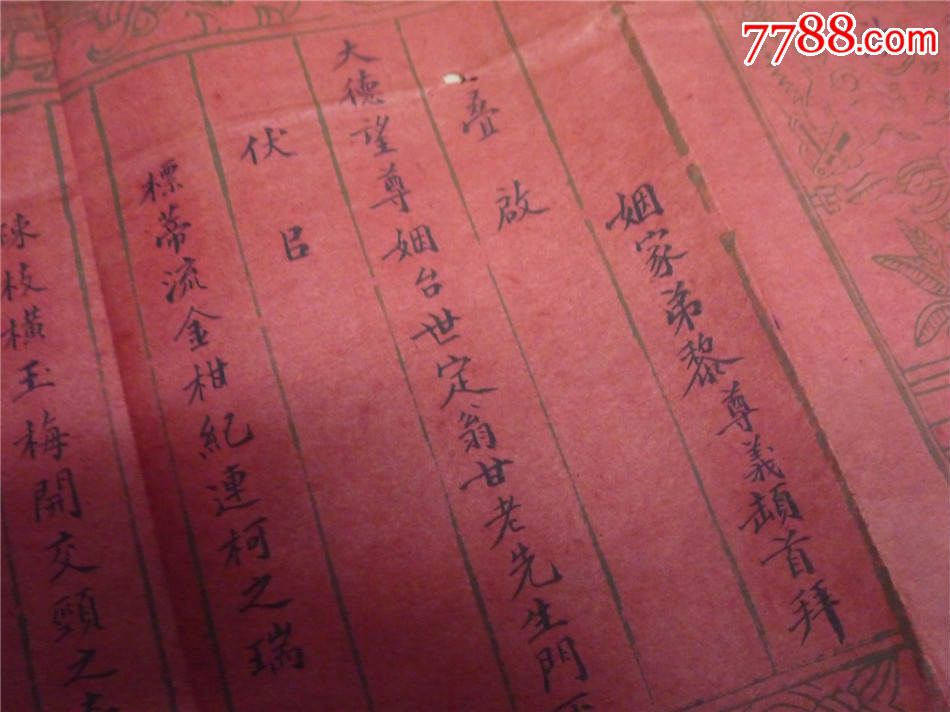 7788.com
姻家弟黎尊義頓首拜
啟
大德望尊姻台世定翁甘老先生門
伏㠯
標蒂流金柑紀連柯之瑞
疎枝橫玉梅開交頸之